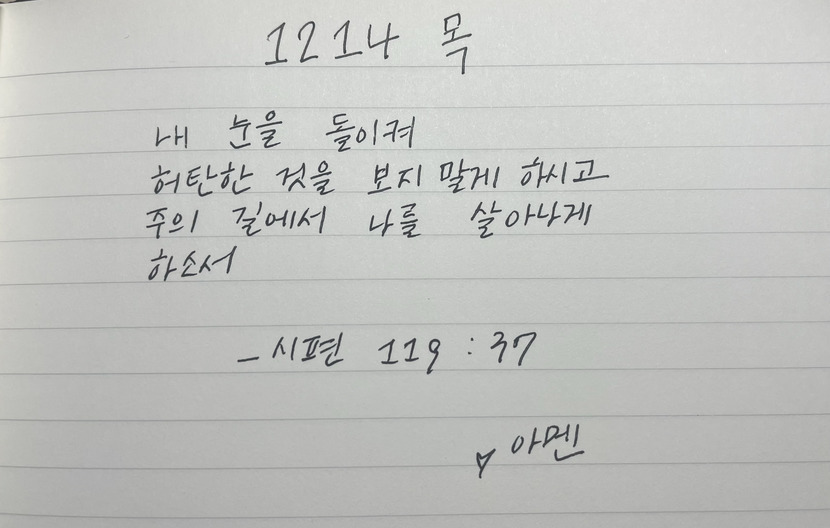 1214 목
내 눈을 돌이켜
허탄한 것을 보지 말게 하시고
주의 길에서 나를 살아나게
하소서
- 시편 119 : 37
아멘